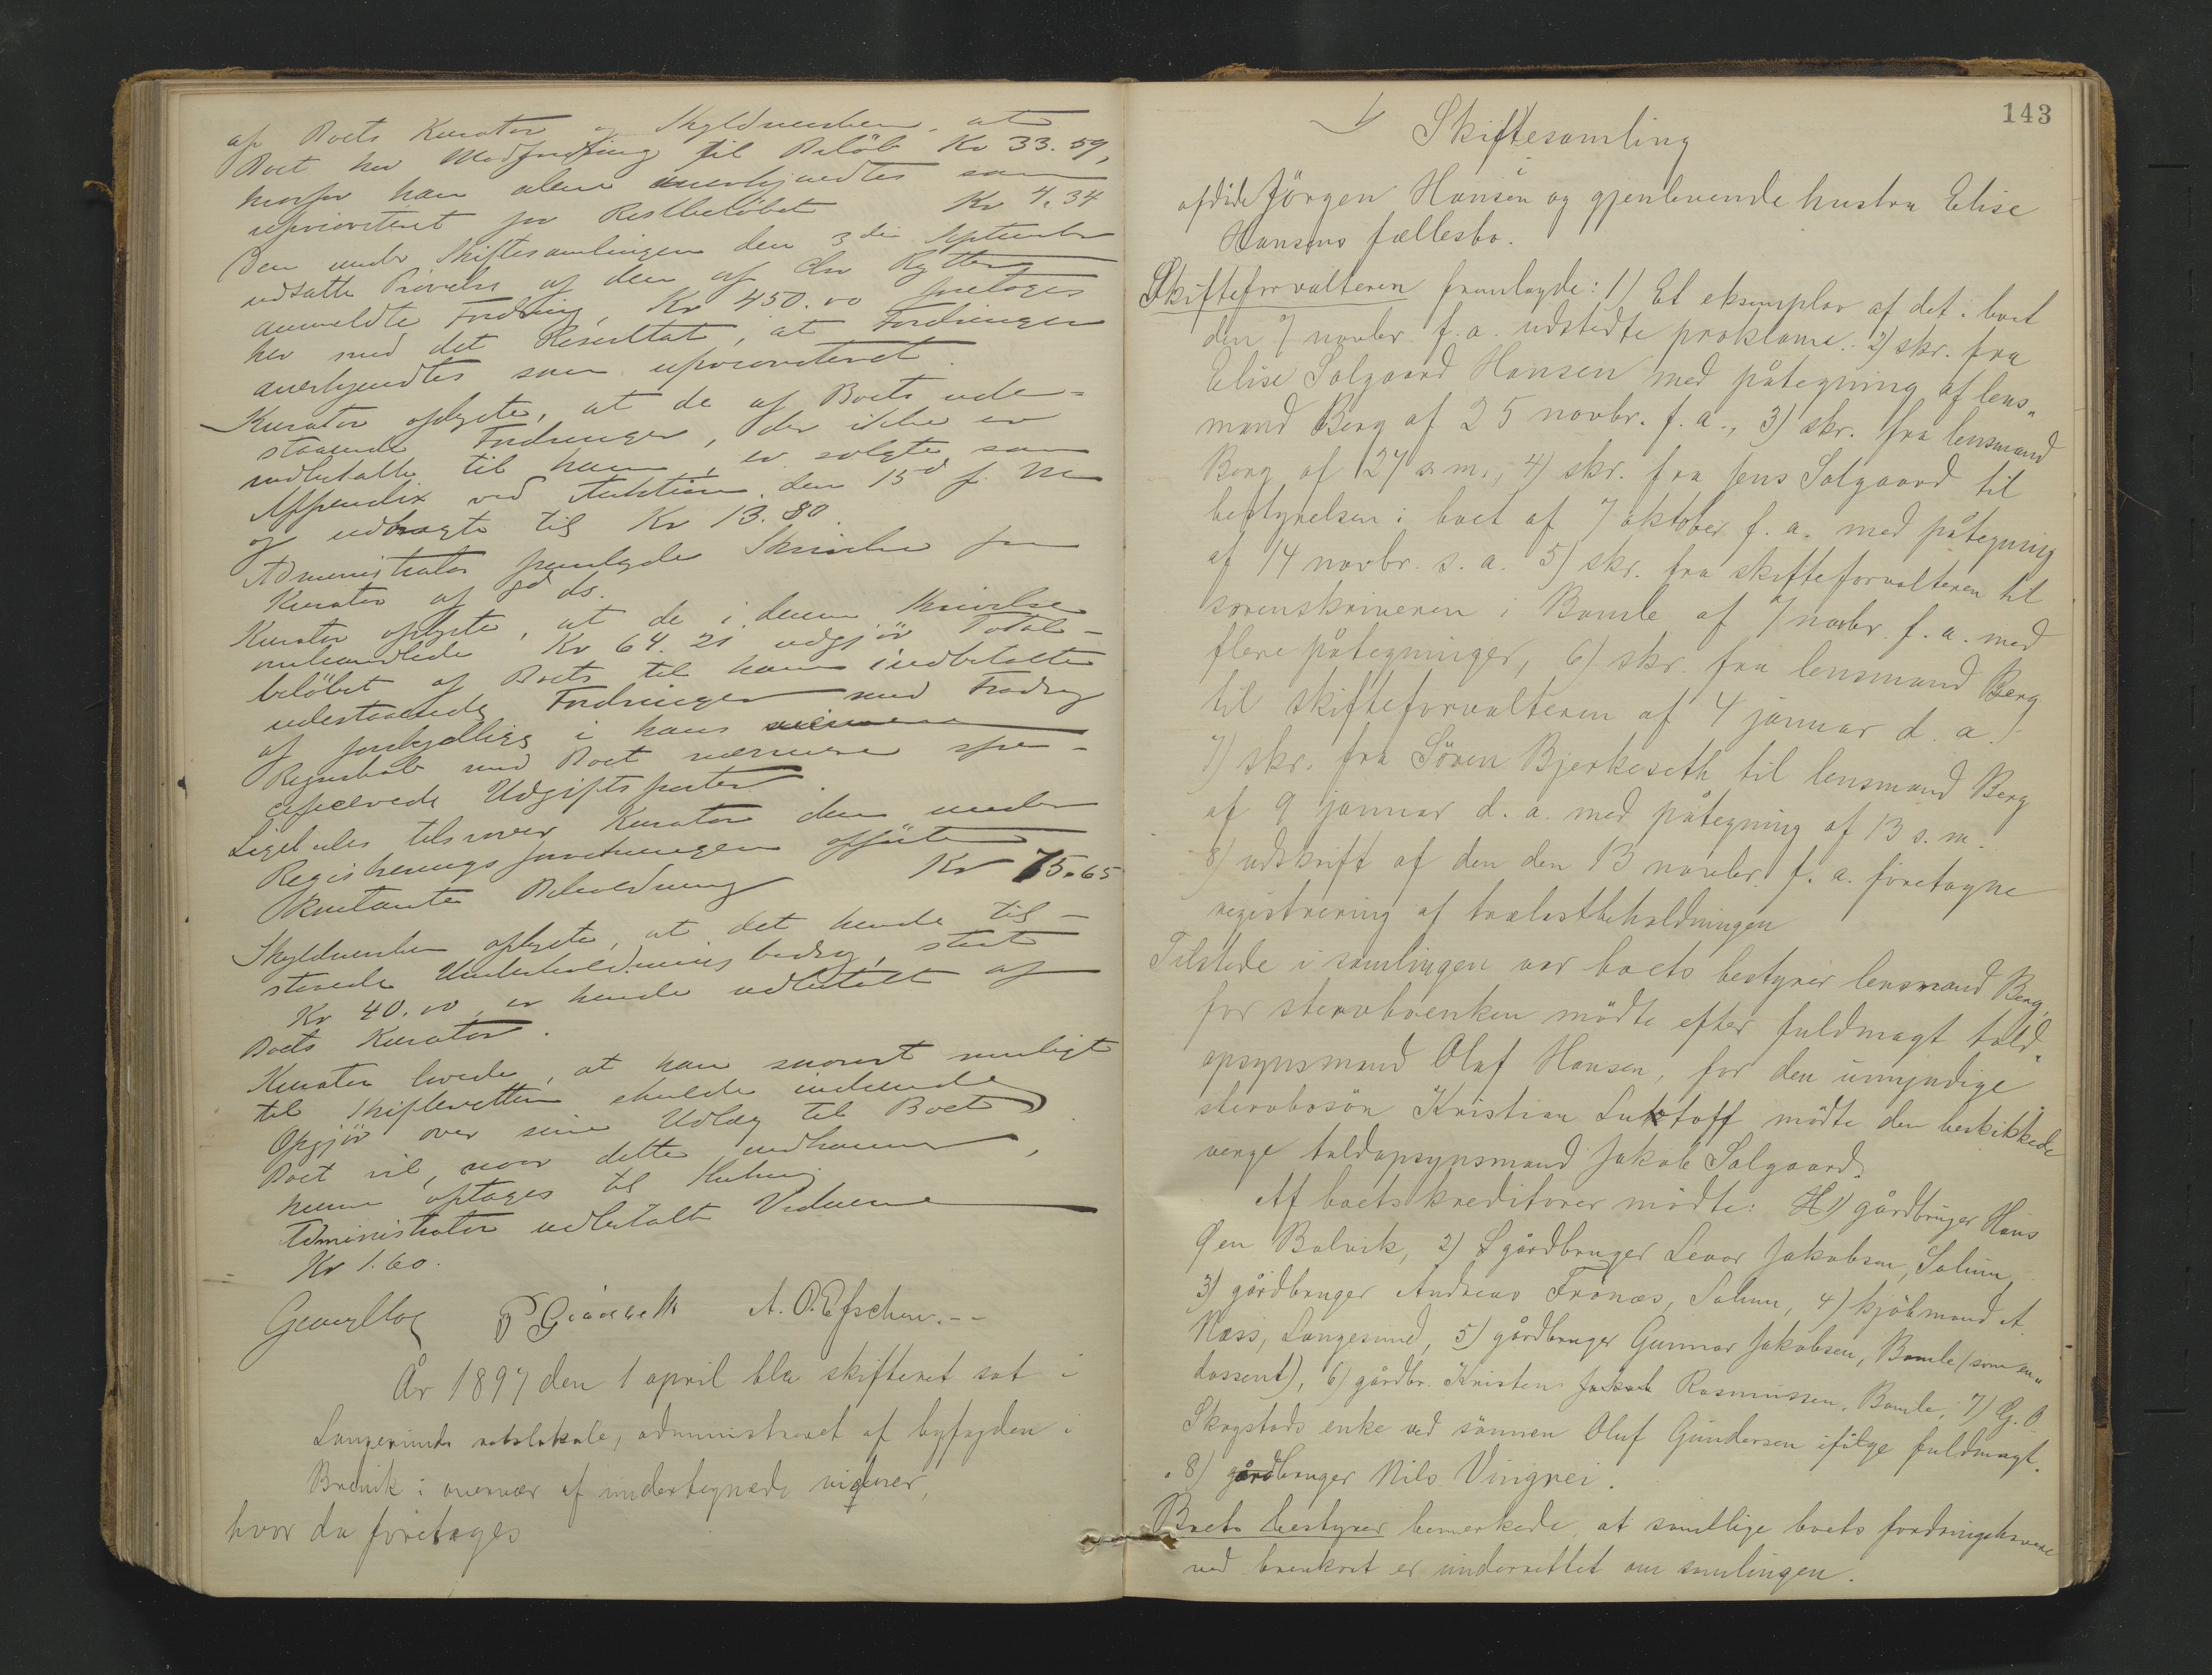 af Boets Kurator og Skyldnersken, at
Boet har Modfordring til Beløb Kr 33.59,
hvorfor han alene anerkjendtes som
uprioriteret for Restbeløbet Kr 4.34
Den under Skiftesamlingen den 3die September
udsatte Prøvelse af den af Chr Rytter
anmeldte Fordring, Kr 450.00 foretoges
her med det Resultat, at Fordringen
anerkjendtes som uprioriteret.
Kurator oplyste, at de af Boets ude-
staaende Fordringer, der ikke er
indbetalte til ham, er solgte som
Appendix ved Auktion den 15d f. M
og udbragte til Kr 13.80.
Administrator fremlagde Skrivelse fra
Kurator af ds.
Kurator oplyste, at de i denne Skrivelse
omhandlede Kr 64.21 udgjør Total-
beløbet af Boets til ham indbetalte
udestaaende Fordringer med Fradrag
af forskjellige i hans
Regnskab med Boet nærmere spe-
cificerede Udgiftsposter.
Ligeledes tilsvarer Kurator den under
Registreringsforretningen opførte
kontante Beholdning Kr 75.65
Skyldnersken oplyste, at det hende til-
staaede Underholdningsbidrag, stort
Kr 40.00, er hende udbetalt af
Boets Kurator.
Kurator lovede, at han snarest muligt
til Skifteretten skulde indsende
Opgjør over sine Udlæg til Boet
Boet vil, naar dette indkommer,
kunne optages til Slutning
Administrator udbetalte Vidnerne
Kr 1.60.
A. P. Efschen.--
År 1897 den 1 april blev skifteret sat i
Langesunds retslokale, administreret af byfogden i
Brevik i overvær af undertegnede vidner,
hvor da foretoges
143
1/ Skiftesamling
afdøde Jörgen Hansen og gjenlevende hustru Elise
Hansens fællesbo.
Skifteforvalteren fremlagde: 1) Et eksemplar af det i boet
den 7 novbr. f.a. udstedte proklama. 2) skr. fra
Elise Salgaard Hansen med påtegning af lens„
mand Berg af 25 novbr. f. a., 3) skr. fra lensmand
Berg af 27 s. m., 4) skr. fra Jens Salgaard til
bestyrelsen i boet af 7 oktober f. a. med påtegning
af 14 novbr. s. a. 5) skr. fra skifteforvalteren til
sorenskriveren i Bamle af 7 novbr. f. a. med
flere påtegninger, 6) skr. fra lensmand Berg
til skifteforvalteren af 4 januar d. a.
7) skr. fra Sören Bjerkeseth til lensmand Berg
af 9 januar d. a. med påtegning af 13 s. m.
8) udskrift af den den 13 novbr. f. a. foretagne
registrering af trælastbeholdningen
Tilstede i samlingen var boets bestyrer lensmand Berg,
for stervboenken mödte efter fuldmagt told„
opsynsmand Oluf Hansen, for den umyndige
stervbosön Kristian Lutstoff mödte den beskikkede
verge toldopsynsmand Jakob Salgaard.
Af boets kreditorer mödte: H 1) gårdbruger Hans
Gen Balvik, 2) S gårdbruger Levor Jakobsen, Solum,
3) gårdbruger Andreas Frönæs, Solum, 4) kjöbmand A.
Næss, Langesund, 5) gårdbruger Gunnar Jakobsen, Bamle (som en„
dossent), 6) gårdbr. Kristen Jakob Rasmussen, Bamle, 7) G. O.
Skogstads enke ved sönnen Oluf Gundersen ifölge fuldmagt.
8) gårdbruger Nils Vingrei.
Boets bestyrer bemerkede at samtlige boets fordringshavere
ved brevkort er underrettet om samlingen.